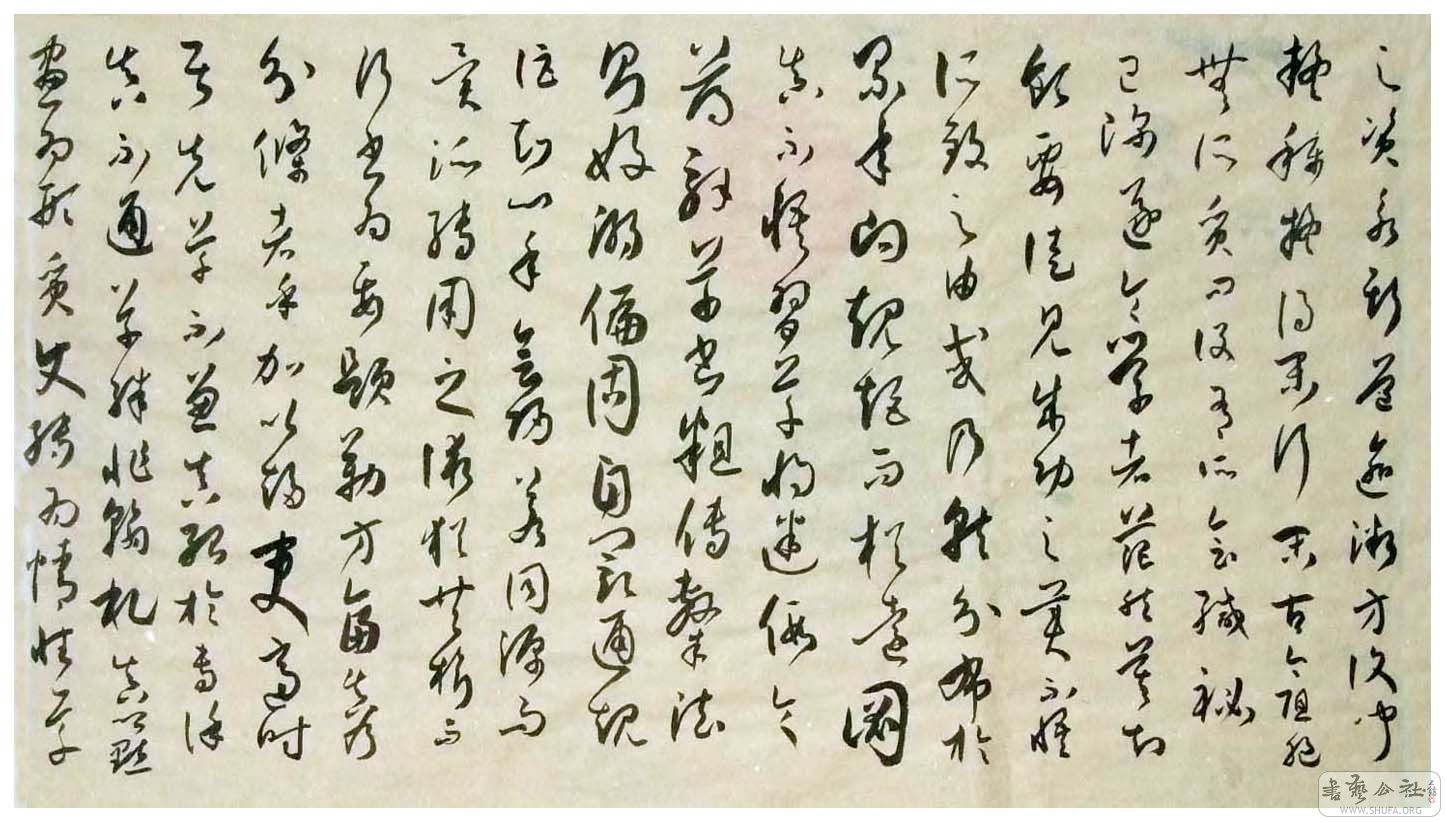 之滋永斯道逾微方復聞
疑稱疑得末行末古今阻絕
無所質問設有所會緘秘
已深遂令學者茫然莫知
領要徒見成功之美不悟
所致之由或乃就分布於
累年向規矩而猶遠圖
真不悟習草將迷假令
薄解草書粗傳隸法
則好溺偏固自閡通規
詎知心手會歸若同源而
異派轉用之術猶共樹而
行書為要題勒方畐真乃
分條者乎加以趨變適時
居先草不兼真殆於專謹
真不通草殊非翰札真以點
畫為形質使轉為情性草
書藝公社
WWW.SHUFA.ORG